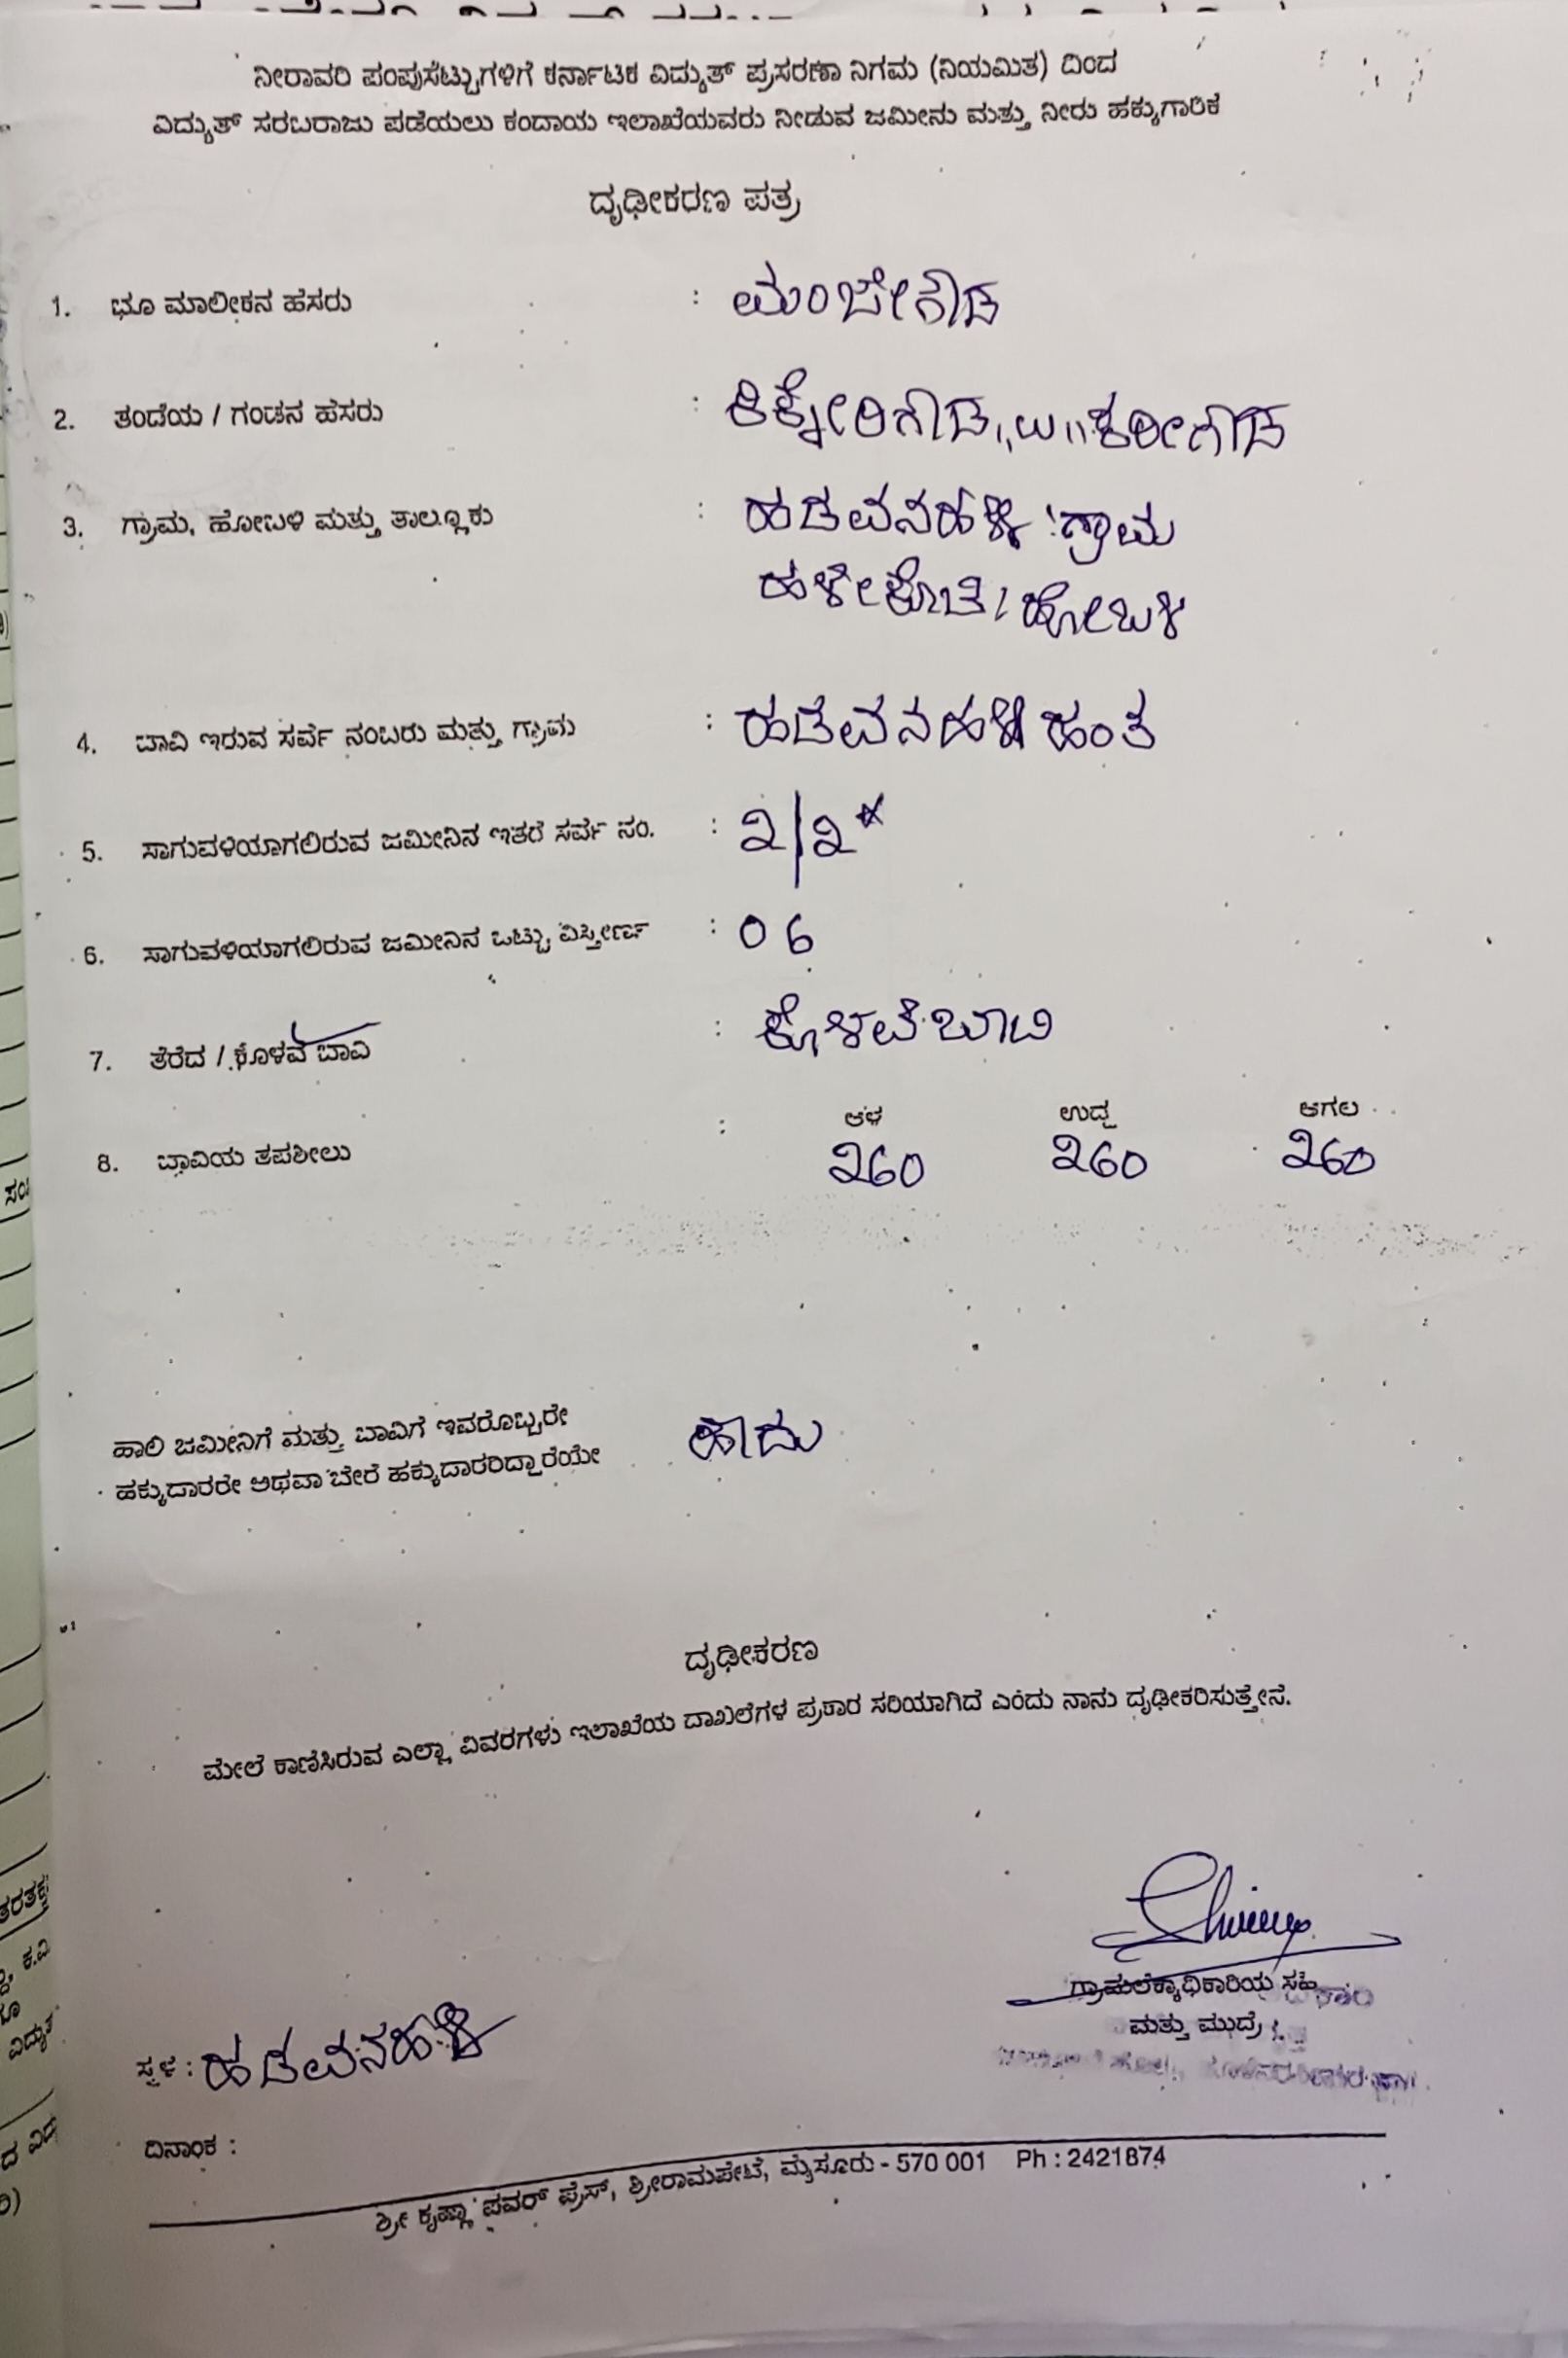 ನೀರಾವರಿ ಪಂಪುಸೆಟ್ಟುಗಳಿಗೆ ಕರ್ನಾಟಕ ವಿದ್ಯುತ್ ಪ್ರಸರಣಾ ನಿಗಮ (ನಿಯಮಿತ) ದಿಂದ
ವಿದ್ಯುತ್ ಸರಬರಾಜು ಪಡೆಯಲು ಕಂದಾಯ ಇಲಾಖೆಯವರು ನೀಡುವ ಜಮೀನು ಮತ್ತು ನೀರು ಹಕ್ಕುಗಾರಿಕೆ
ದೃಢೀಕರಣ ಪತ್ರ
1. ಭೂ ಮಾಲೀಕನ ಹೆಸರು : ಮಂಜೇಗೌಡ
2. ತಂದೆಯ / ಗಂಡನ ಹೆಸರು : ಕಿಕ್ಕೇರಿಗೌಡ ಕರೀಗೌಡ
3. ಗ್ರಾಮ, ಹೋಬಳಿ ಮತ್ತು ತಾಲ್ಲೂಕು : ಹಡವನಹಳ್ಳಿ ಗ್ರಾಮ
ಹಳೇಕೋಟೆ / ಹೋಬಳಿ
4. ಬಾವಿ ಇರುವ ಸರ್ವೆ ನಂಬರು ಮತ್ತು ಗ್ರಾಮ : ಹಡವನಹಳ್ಳಿ ಹಂತ
5. ಸಾಗುವಳಿಯಾಗಲಿರುವ ಜಮೀನಿನ ಇತರೆ ಸರ್ವೆ ನಂ. : ೨/೨*
6. ಸಾಗುವಳಿಯಾಗಲಿರುವ ಜಮೀನಿನ ಒಟ್ಟು ವಿಸ್ತೀರ್ಣ : 06
7. ತೆರೆದ / ಕೊಳವೆ ಬಾವಿ : ಕೊಳವೆ ಬಾವಿ
ಆಳ ಉದ್ದ ಅಗಲ
8. ಬಾವಿಯ ತಪಶೀಲು : 260 260 260
ಹಾಲಿ ಜಮೀನಿಗೆ ಮತ್ತು ಬಾವಿಗೆ ಇವರೊಬ್ಬರೇ
ಹಕ್ಕುದಾರರೇ ಅಥವಾ ಬೇರೆ ಹಕ್ಕುದಾರರಿದ್ದಾರೆಯೇ ಹೌದು
ದೃಢೀಕರಣ
ಮೇಲೆ ಕಾಣಿಸಿರುವ ಎಲ್ಲಾ ವಿವರಗಳು ಇಲಾಖೆಯ ದಾಖಲೆಗಳ ಪ್ರಕಾರ ಸರಿಯಾಗಿದೆ ಎಂದು ನಾನು ದೃಢೀಕರಿಸುತ್ತೇನೆ.
ಗ್ರಾಮಲೆಕ್ಕಾಧಿಕಾರಿಯ ಸಹಿ
ಮತ್ತು ಮುದ್ರೆ
ಸ್ಥಳ : ಹಡವನಹಳ್ಳಿ
ದಿನಾಂಕ :
ಶ್ರೀ ಕೃಷ್ಣಾ ಪವರ್ ಪ್ರೆಸ್, ಶ್ರೀರಾಮಪೇಟೆ, ಮೈಸೂರು - 570 001 Ph : 2421874